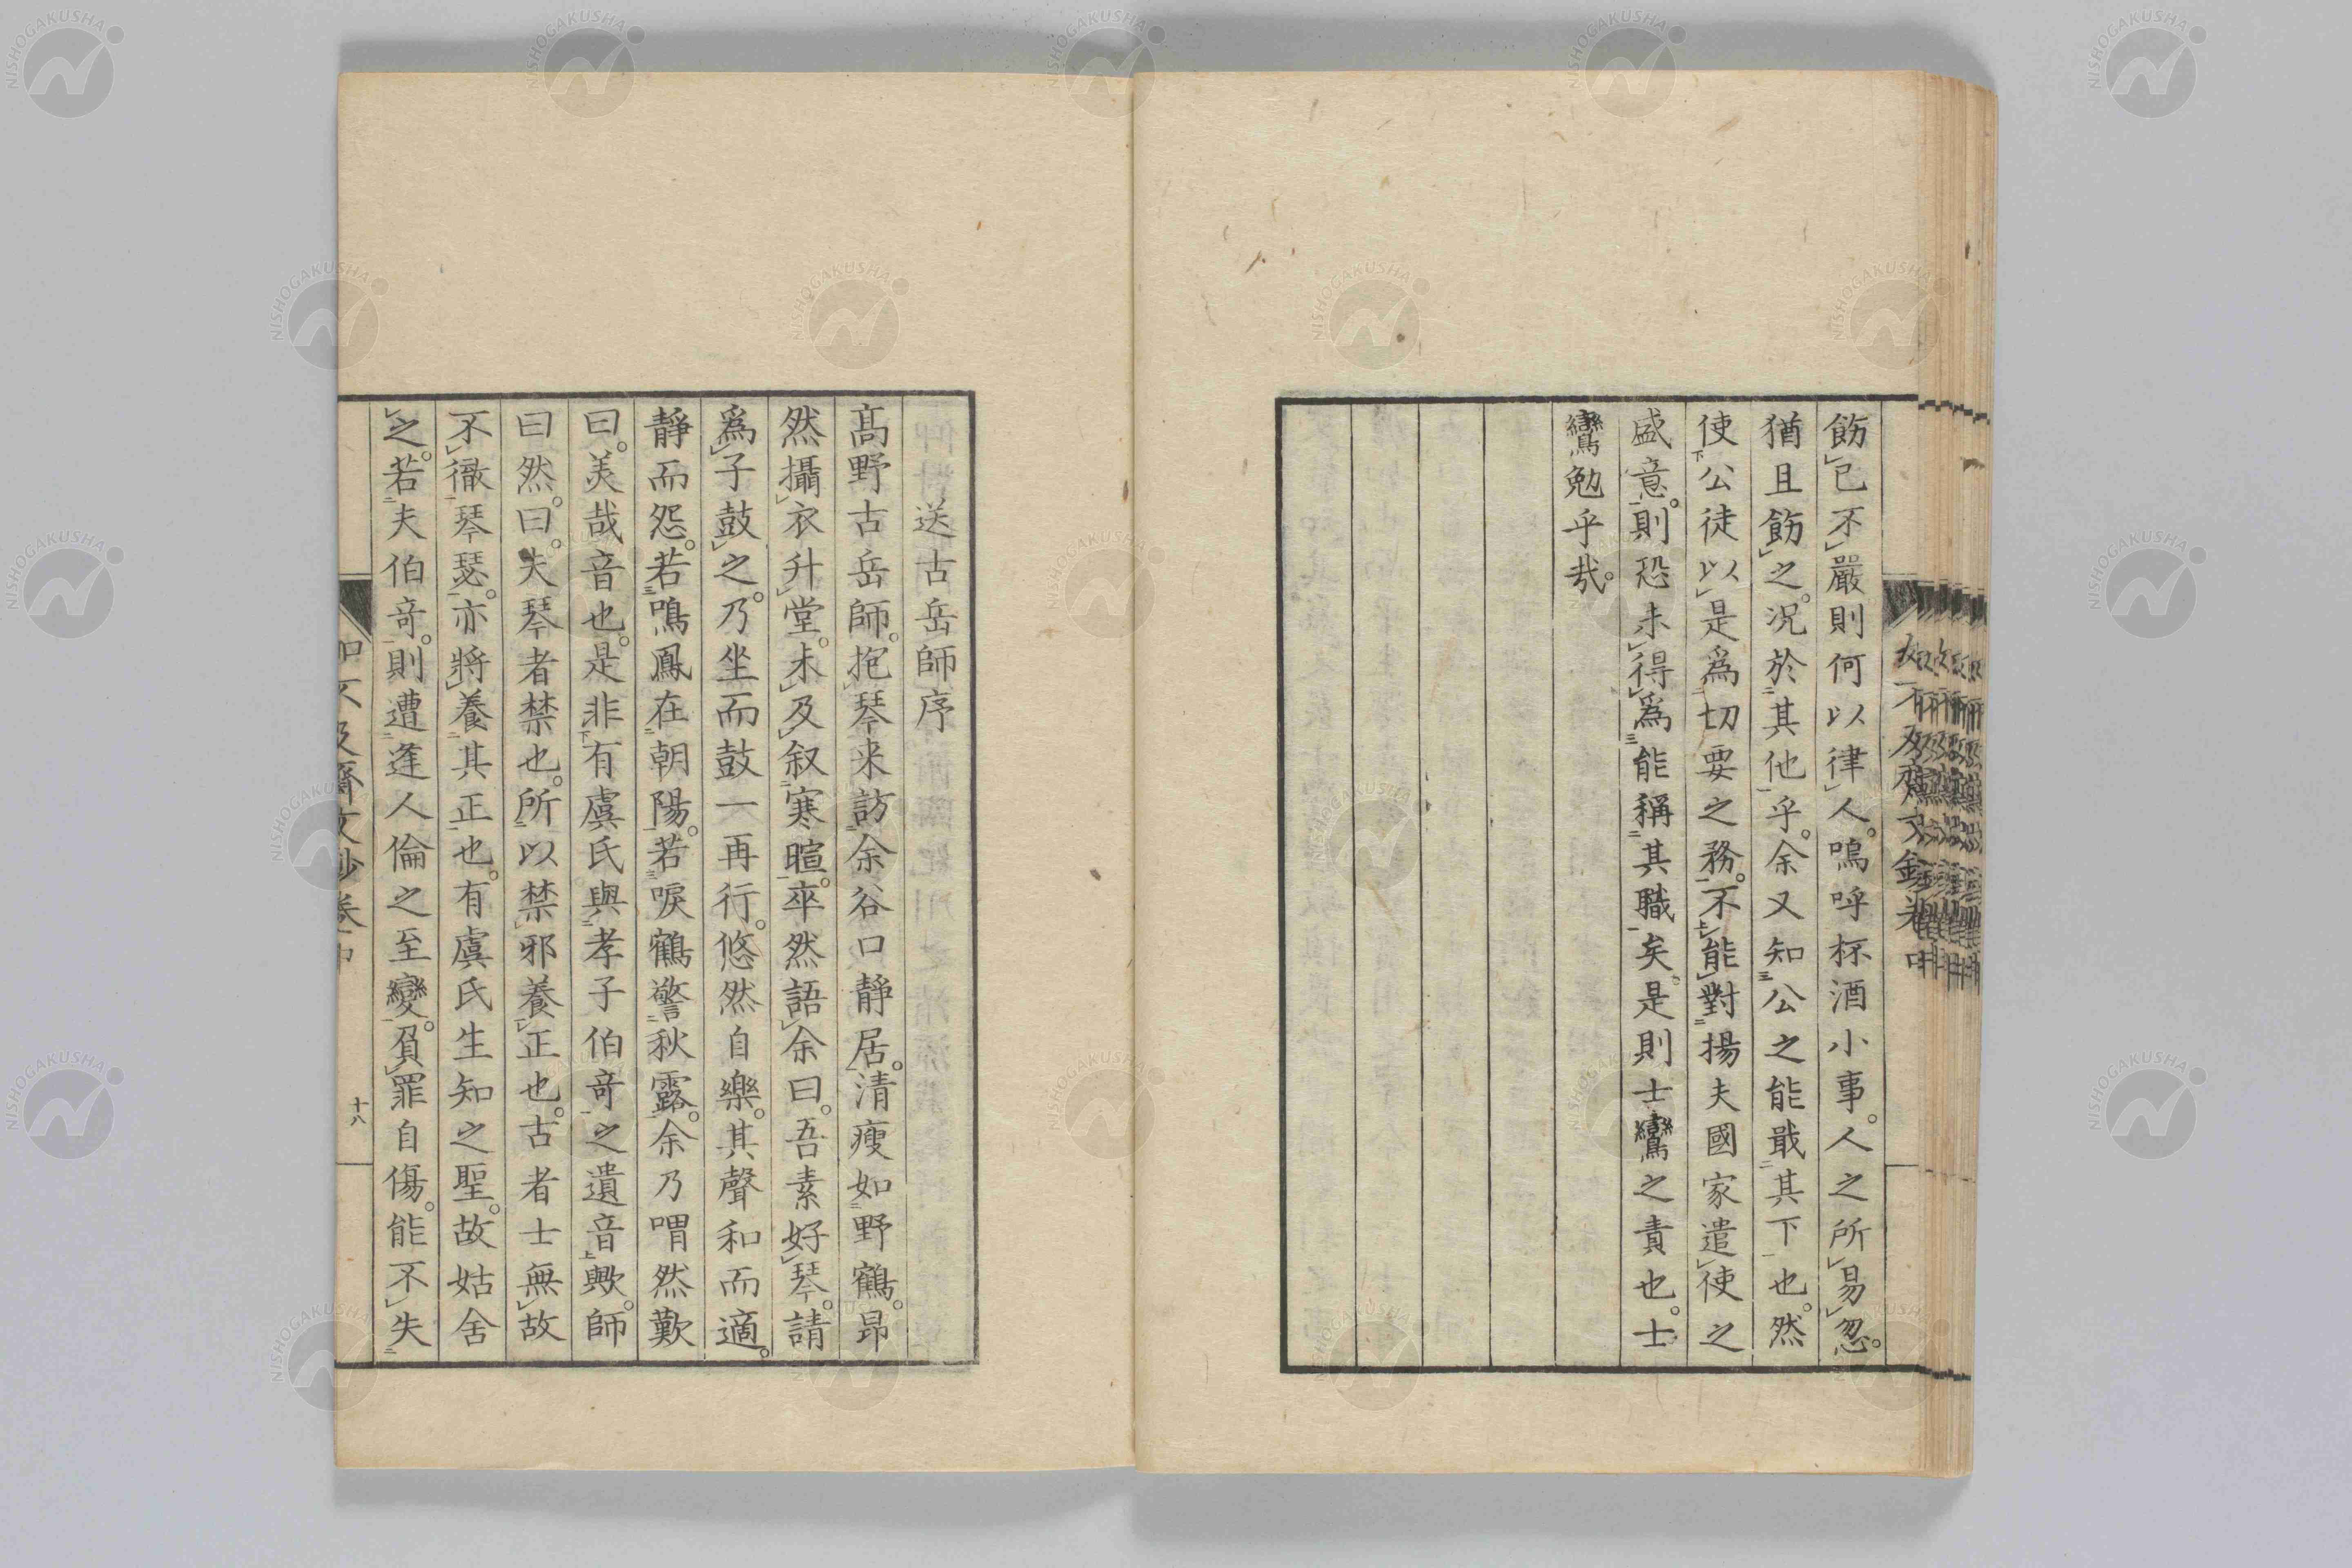 飭己不嚴則何以律人。嗚呼杯酒小事。人之所易忽。
猶且飭之。況於其他乎。余又知公之能戢其下也。然
使公徒以是爲切要之務。不能對揚夫國家遣使之
盛意。則恐未得爲能稱其職矣。是則士鸞之責也。士
鸞勉乎哉。
送古岳師序
髙野古岳師。抱琴来訪余谷口靜居。清瘦如野鶴。昂
然攝衣升堂。未及叙寒暄。卒然語余曰。吾素好琴。請
爲子鼓之。乃坐而鼓一再行。悠然自樂。其聲和而適。
靜而怨。若鳴鳳在朝陽。若唳鶴警秋露。余乃喟然歎
曰。美哉音也。是非有虞氏與孝子伯竒之遺音歟。師
曰然。曰。夫琴者禁也。所以禁邪養正也。古者士無故
不徹琴瑟。亦將養其正也。有虞氏生知之聖。故姑舍
之。若夫伯竒。則遭逢人倫之至變。負罪自傷。能不失
如不及齋文鈔卷中
十八
NISHOGAKUSHA